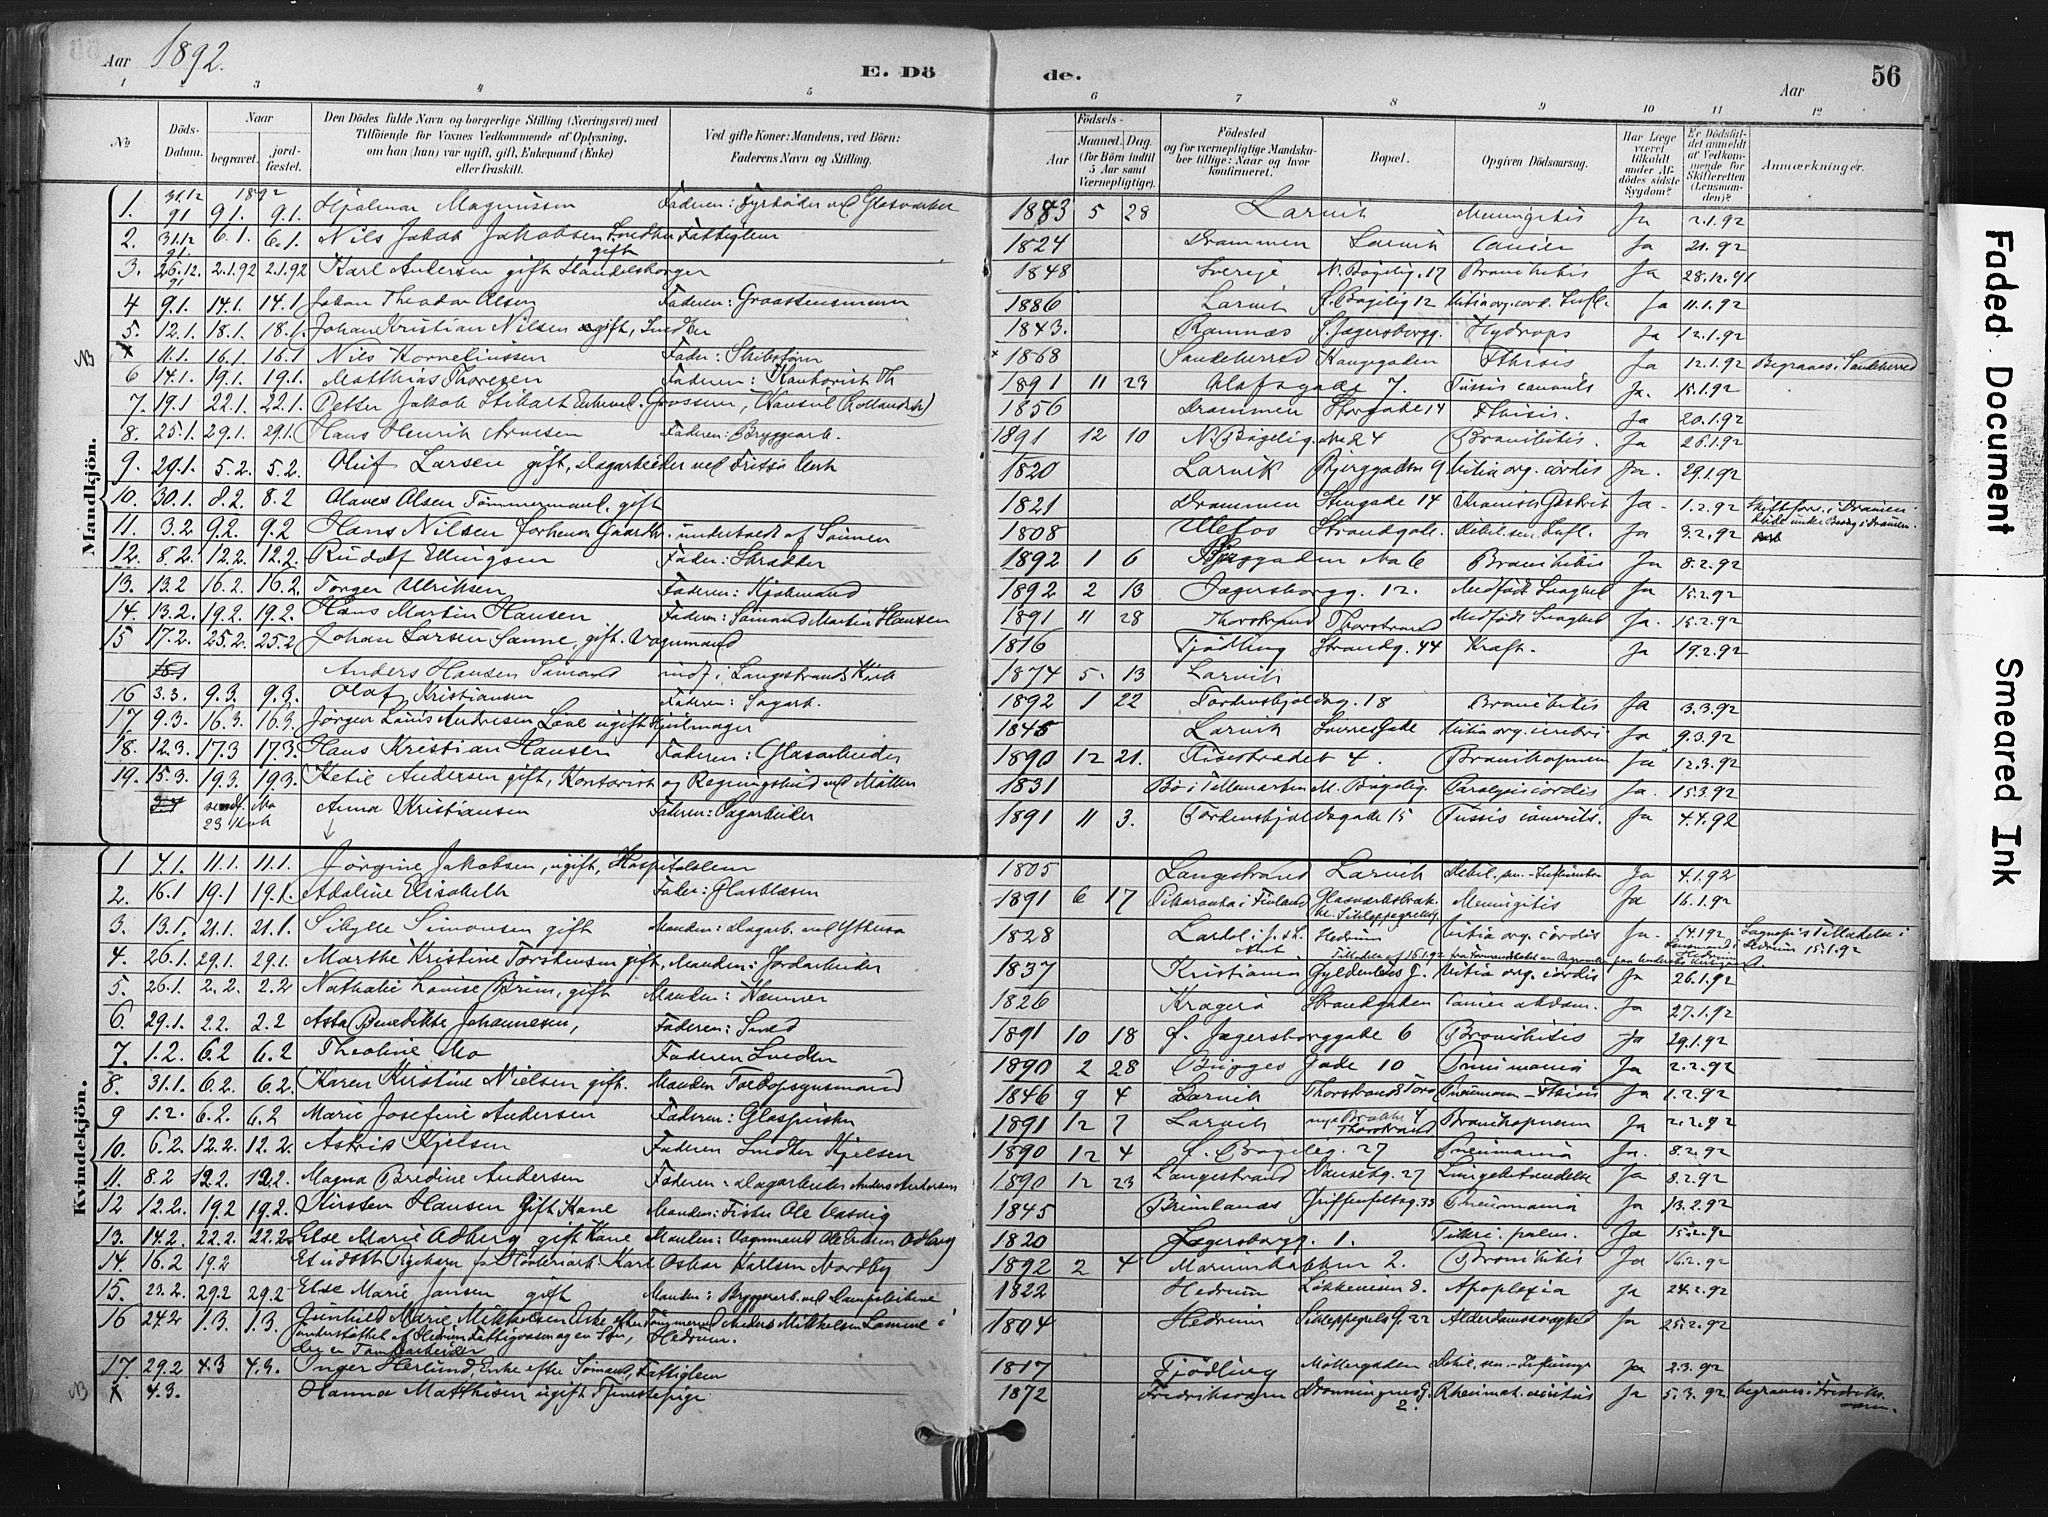 Aar 1892.
E. Dö de.
Aar
56
1 2 3 4 5 6 7 8 9 10 11 12
No
Döds-Datum.
Naar
begravet.
jord-fæstet.
Den Dödes fulde Navn og borgerlige Stilling (Næringsvei) med
Tilföiende for Voxnes Vedkommende af Oplysning,
om han (hun) var ugift, gift, Enkemand (Enke)
eller fraskilt.
Ved gifte Koner: Mandens, ved Börn:
Faderens Navn og Stilling.
Födsels-
Aar
Maaned. Dag.
(for Börn indtil
5 Aar samt
Værnepligtige).
Födested
og for værnepligtige Mandska-
ber tillige: Naar og hvor
konfirmeret.
Bopæl.
Opgiven Dödsaarsag.
Har Læge
været
tilkaldt
under Af-
dödes sidste
Sygdom?
Er Dödsfal-
det anmeldt
af Vedkom-
mende for
Skifteretten
(Lensman-
den)?
Anmærkninger.
Mandkjön.
1. 31.12 91 9.1. 1892 9.1. Hjalmar Magnussen Faderen: Fyrböder ved Glasværket 1883 5 28 Larvik Meningitis Ja 2.1.92
2. 31.12 91. 6.1. 6.1. Nils Jakob Jakobsen Snedker gift Fattiglem 1824 Drammen Larvik Cancer Ja 2.1.92
3. 26.12. 91 2.1.92 2.1.92 Karl Andersen gift Handelsborger 1848 Sverige N. Bøgelig. 17 Bronchitis Ja 28.12.91
4 9.1. 14.1. 14.1. Johan Theodor Olsen Faderen: Graastensmurer 1886 Larvik S. Bøgelig 12 Vitia org. cord. Infl. Ja 11.1.92
5. 12.1. 18.1. 18.1. Johan Kristian Nilsen ugift, Snedker 1843. Ramnæs S. Jegersborgg. Hydrops Ja 12.1.92
NB x 11.1. 16.1. 16.1 Nils Korneliussen Fader: Skibsfører x 1868 Sandeherred Kongegaden Fthisis Ja 12.1.92 Begraves i Sandeherred
6 14.1. 19.1. 19.1. Matthias Thoresen Faderen: Kontorist Th 1891 11 23 Olafsgade 7. Tussis convuls Ja. 15.1.92
7. 19.1 22.1. 22.1. Petter Jakob Stibolt Enkem. Grosserer, Konsul (Hollandsk) 1856 Drammen Storgade 14 Fthisis. Ja 20.1.92
8. 25.1. 29.1. 29.1. Hans Henrik Arnesen Faderen: Bryggearb. 1891 12 10 N. Bøgelig. No 24 Bronchitis. Ja 26.1.92
9. 29.1. 5.2. 5.2. Oluf Larsen gift, Dagarbeider ved Fritzø Verk 1820 Larvik Bjerggaden 9 Vitia org. cordis Ja. 29.1.92
10. 30.1. 8.2. 8.2 Olaves Olsen Tømmermand, gift 1821 Drammen Stengade 14 Kronisk Gastrit Ja. 1.2.92
11. 3.2 9.2. 9.2 Hans Nilsen Forhenv. Gaardbr. underholdt af Sønnen 1808 Ulefos Strandgade. Debil. sen. Infl. Ja 3.2.92
12. 8.2. 12.2. 12.2. Rudolf Ellingsen Fader: Skrædder 1892 1 6 Bjerggaden No 6 Bronchitis Ja 8.2.92
13. 13.2 16.2. 16.2. Torger Ulriksen Faderen: Kjøbmand 1892 2 13 Jegersborgg. 12. Medfødt Svaghed Ja 15.2.92
14. 13.2. 19.2. 19.2. Hans Martin Hansen Faderen: Sømand Martin Hansen 1891 11 28 Thorstrand Thorstrand Medfødt Svaghed Ja. 15.2.92
15 17.2. 25.2. 25.2 Johan Larsen Sanne, gift. Vognmand 1816 Tjødling Strandg. 44 Kræft. Ja 19.2.92
Anders Hansen Sømand indf. i Langestrands Kirk 1874 5. 13 Larvik
16 3.3. 9.3. 9.3. Olaf Kristiansen Faderen: Sagarb. 1892 1 22 Tordenskjoldsg. 18 Bronchitis Ja 3.3.92
17. 9.3. 16.3. 16.3. Jørgen Louis Andresen Love ugift Hjulmager 1845 Larvik Sverresgade Vitia org. cerebri Ja 9.3.92
18. 12.3. 17.3 17.3. Hans Kristian Hansen Faderen: Glasarbeider 1890 12 21. Fisestrædet 4. Bronchopneum Ja 12.3.92
19. 15.3. 19.3. 19.3. Ketil Andersen gift, Kontorist og Regningsbud ved Møllen 1831 Bø i Tellemarken N. Bøgelig. Paralysis cordis Ja. 15.3.92
23 Anna Kristiansen Faderen: Sagarbeider 1891 11 3. Tordenskjoldsgade 15 Tussis convuls. Ja 4.4.92
Kvindekjön.
1 4.1. 11.1. 11.1. Jørgine Jakobsen, ugift, Hospitalslem 1805 Langestrand Larvik Debil. sen.- Influentsa Ja 4.1.92
2. 16.1 19.1 19.1. Adeline Elisabeth Fader: Glasblæser 1891 6 17 i Finland Meningitis Ja 16.1.92
3. 13.1. 21.1. 21.1. Sibylle Simonsen gift Manden: Dagarb. 1828 Lardal Hedrum Vitia org. cordis Ja. 14.1.92 Hedrum 15.1.92
4. 26.1. 29.1. 29.1. Marthe Kristine Torstensen gift, Manden: Jordarbeider 1837 Kristiania Gyldenløves g. Vitia org. cordis Ja 26.1.92
5. 26.1. 2.2. 2.2 Nathalie Lovise Brim, gift Manden: Kæmner 1826 Kragerø Strandgaden Cancer abdom. Ja 27.1.92
6. 29.1. 2.2. 2.2 Asta Benedikte Johannesen, Faderen: Smed 1891 10 18 S. Jegersborggade 6 Bronchitis Ja 29.1.92
7. 1.2. 6.2 6.2 Theoline Mo Faderen Snedker 1890 2 28 Brygges Gade 10 Pneumonia Ja 2.2.92
8. 31.1. 6.2. 6.2. Karen Kristine Nielsen gift. Manden Toldopsynsmand 1846 9 4 Larvik Thorstrands Torv Pneumon - Fthisis Ja 1.2.92
9 1.2. 6.2. 6.2 Marie Josefine Andersen Faderen: Glaspuster 1891 12 7 Larvik Thorstrand Bronchopneum Ja 2.2.92
10. 6.2. 12.2. 12.2. Astrid Kjelsen Faderen Snedker Kjelsen 1890 12 4 S. Bøgelig. 27 Pneumonia Ja. 8.2.92
11. 8.2 12.2. 12.2. Magna Bredine Andersen Faderen: Dagarbeider Anders Andersen 1890 12 23 Langestrand Nansetg. 27 Lungebetændelse Ja 8.2.92
12 12.2. 19.2 19.2. Kirsten Hansen Gift Kone Manden: Fisker Ole 1845 Brunlanæs Griffenfeldsg. 33 Pneumonia Ja 13.2.92
13. 14.2. 22.2. 22.2. Else Marie Adberg gift Kone Manden: Vognmand Adberg 1820 Jegersborgg. 1. Ja 15.2.92
14. 16.2 19.2 Et udøbt Pigebarn for Kontoriarb. Karl Oskar Karlsen Nordby 1892 2 4 Marinebakken 2. Bronchitis Ja 16.2.92
15. 23.2. 29.2 29.2 Else Marie Jansen gift Manden: Bryggearb. ved Dampskibene 1822 Hedrum Løkkeveien 8. Apoplexia Ja 24.2.92
16 24.2 1.3. 1.3. Gunhild Marie Mikkelsen Enke efter Tømmermd Anders Mikkelsen i Hedrum. 1804 Hedrum Sikleppegrels G. 22 Alderdomssvaghed Ja 25.2.92
understøttet af Hedrum Fattigvæsen og en Søn,
17. 29.2 4.3 4.3. Inger Herlund, Enke efter Sømand, Fattiglem 1817 Tjødling Møllergaden Debil. sen.- Ja 2.3.92
NB x 4.3. Hanna Matthisen ugift Tjenestepige 1872 Fredriksværn Dronningensg. 2. Rheumat. Ja 5.3.92 begraves i Fredriks-
værn.
Faded Document
Smeared Ink